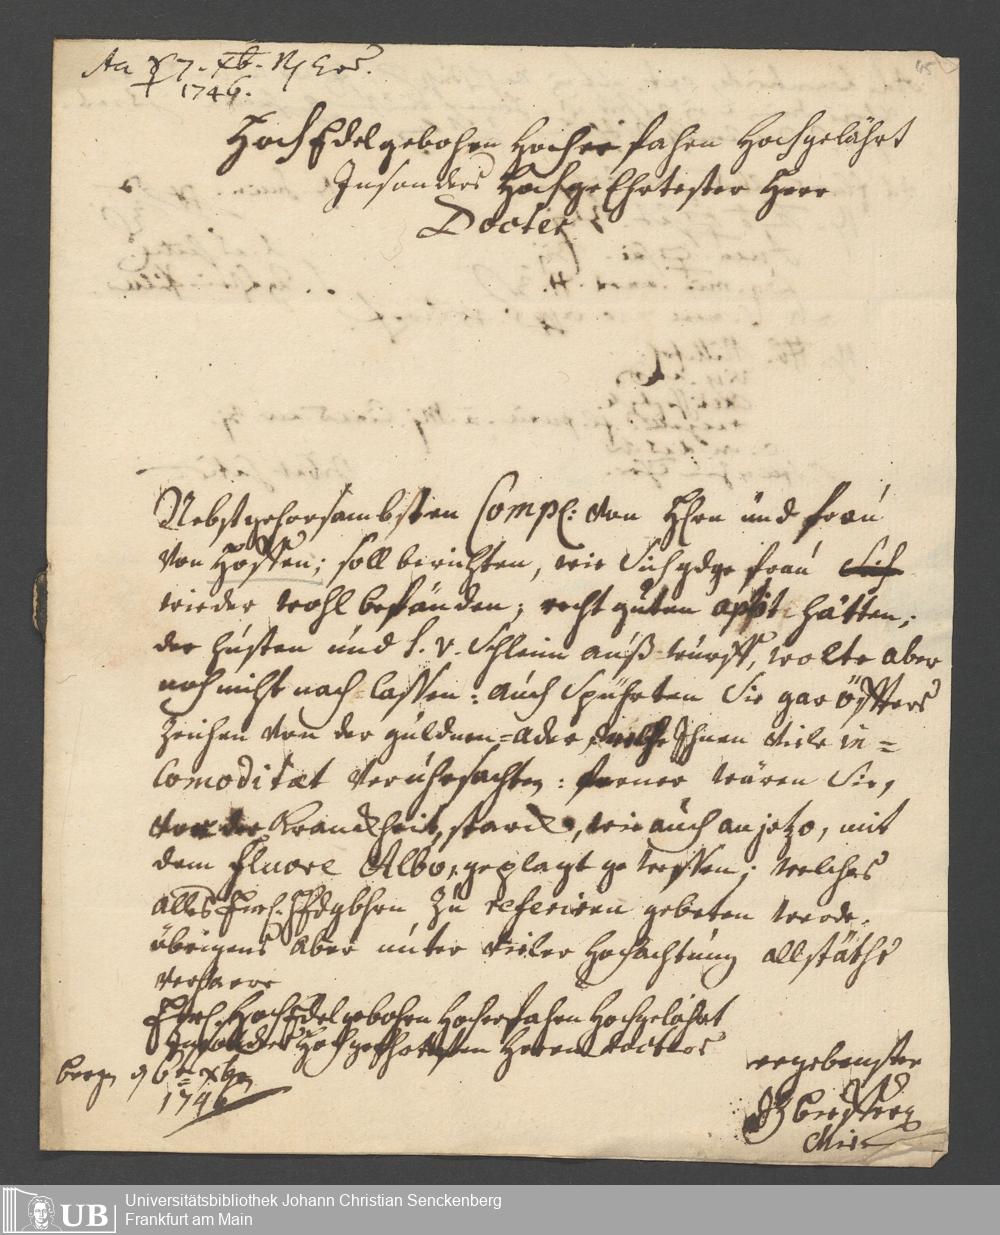 1746.
HochEdelgebohrn Hocherfahrn Hochgelährt
Insonders HochgeEhrtester Herr
Doctor
Nebst gehorsambsten Compl: von Hhrn und frau
von Hossen; soll berichten, wie Sich gdge frau
wieder wohl befänden; recht guten apptit hätten;
der husten und s. v. Schleim auß-wurff, wolte aber
noch nicht nach-lassen: auch Spührten Sie gar öffters
Zeichen von der guldnen-ader, welche Ihnen viele in=
comoditæt veruhrsachten: ferner wären Sie,
vor der Kranckheit, starck, wie auch anjetzo, mit
dem fluore Albo, geplagt gewessen; welches
alles Ewl. HEdgbhrn zu referiren gebeten werde.
übrigens aber unter vieler Hochachtung allstäths
verharre
Ewl. HochEdelgebohrn Hocherfahrn Hochgelährt
Insonders Hochgeehrtesten Herrn Doctors
bergen d 6ten xbr
1746
ergebenster
UB
Universitätsbibliothek Johann Christian Senckenberg
Frankfurt am Main